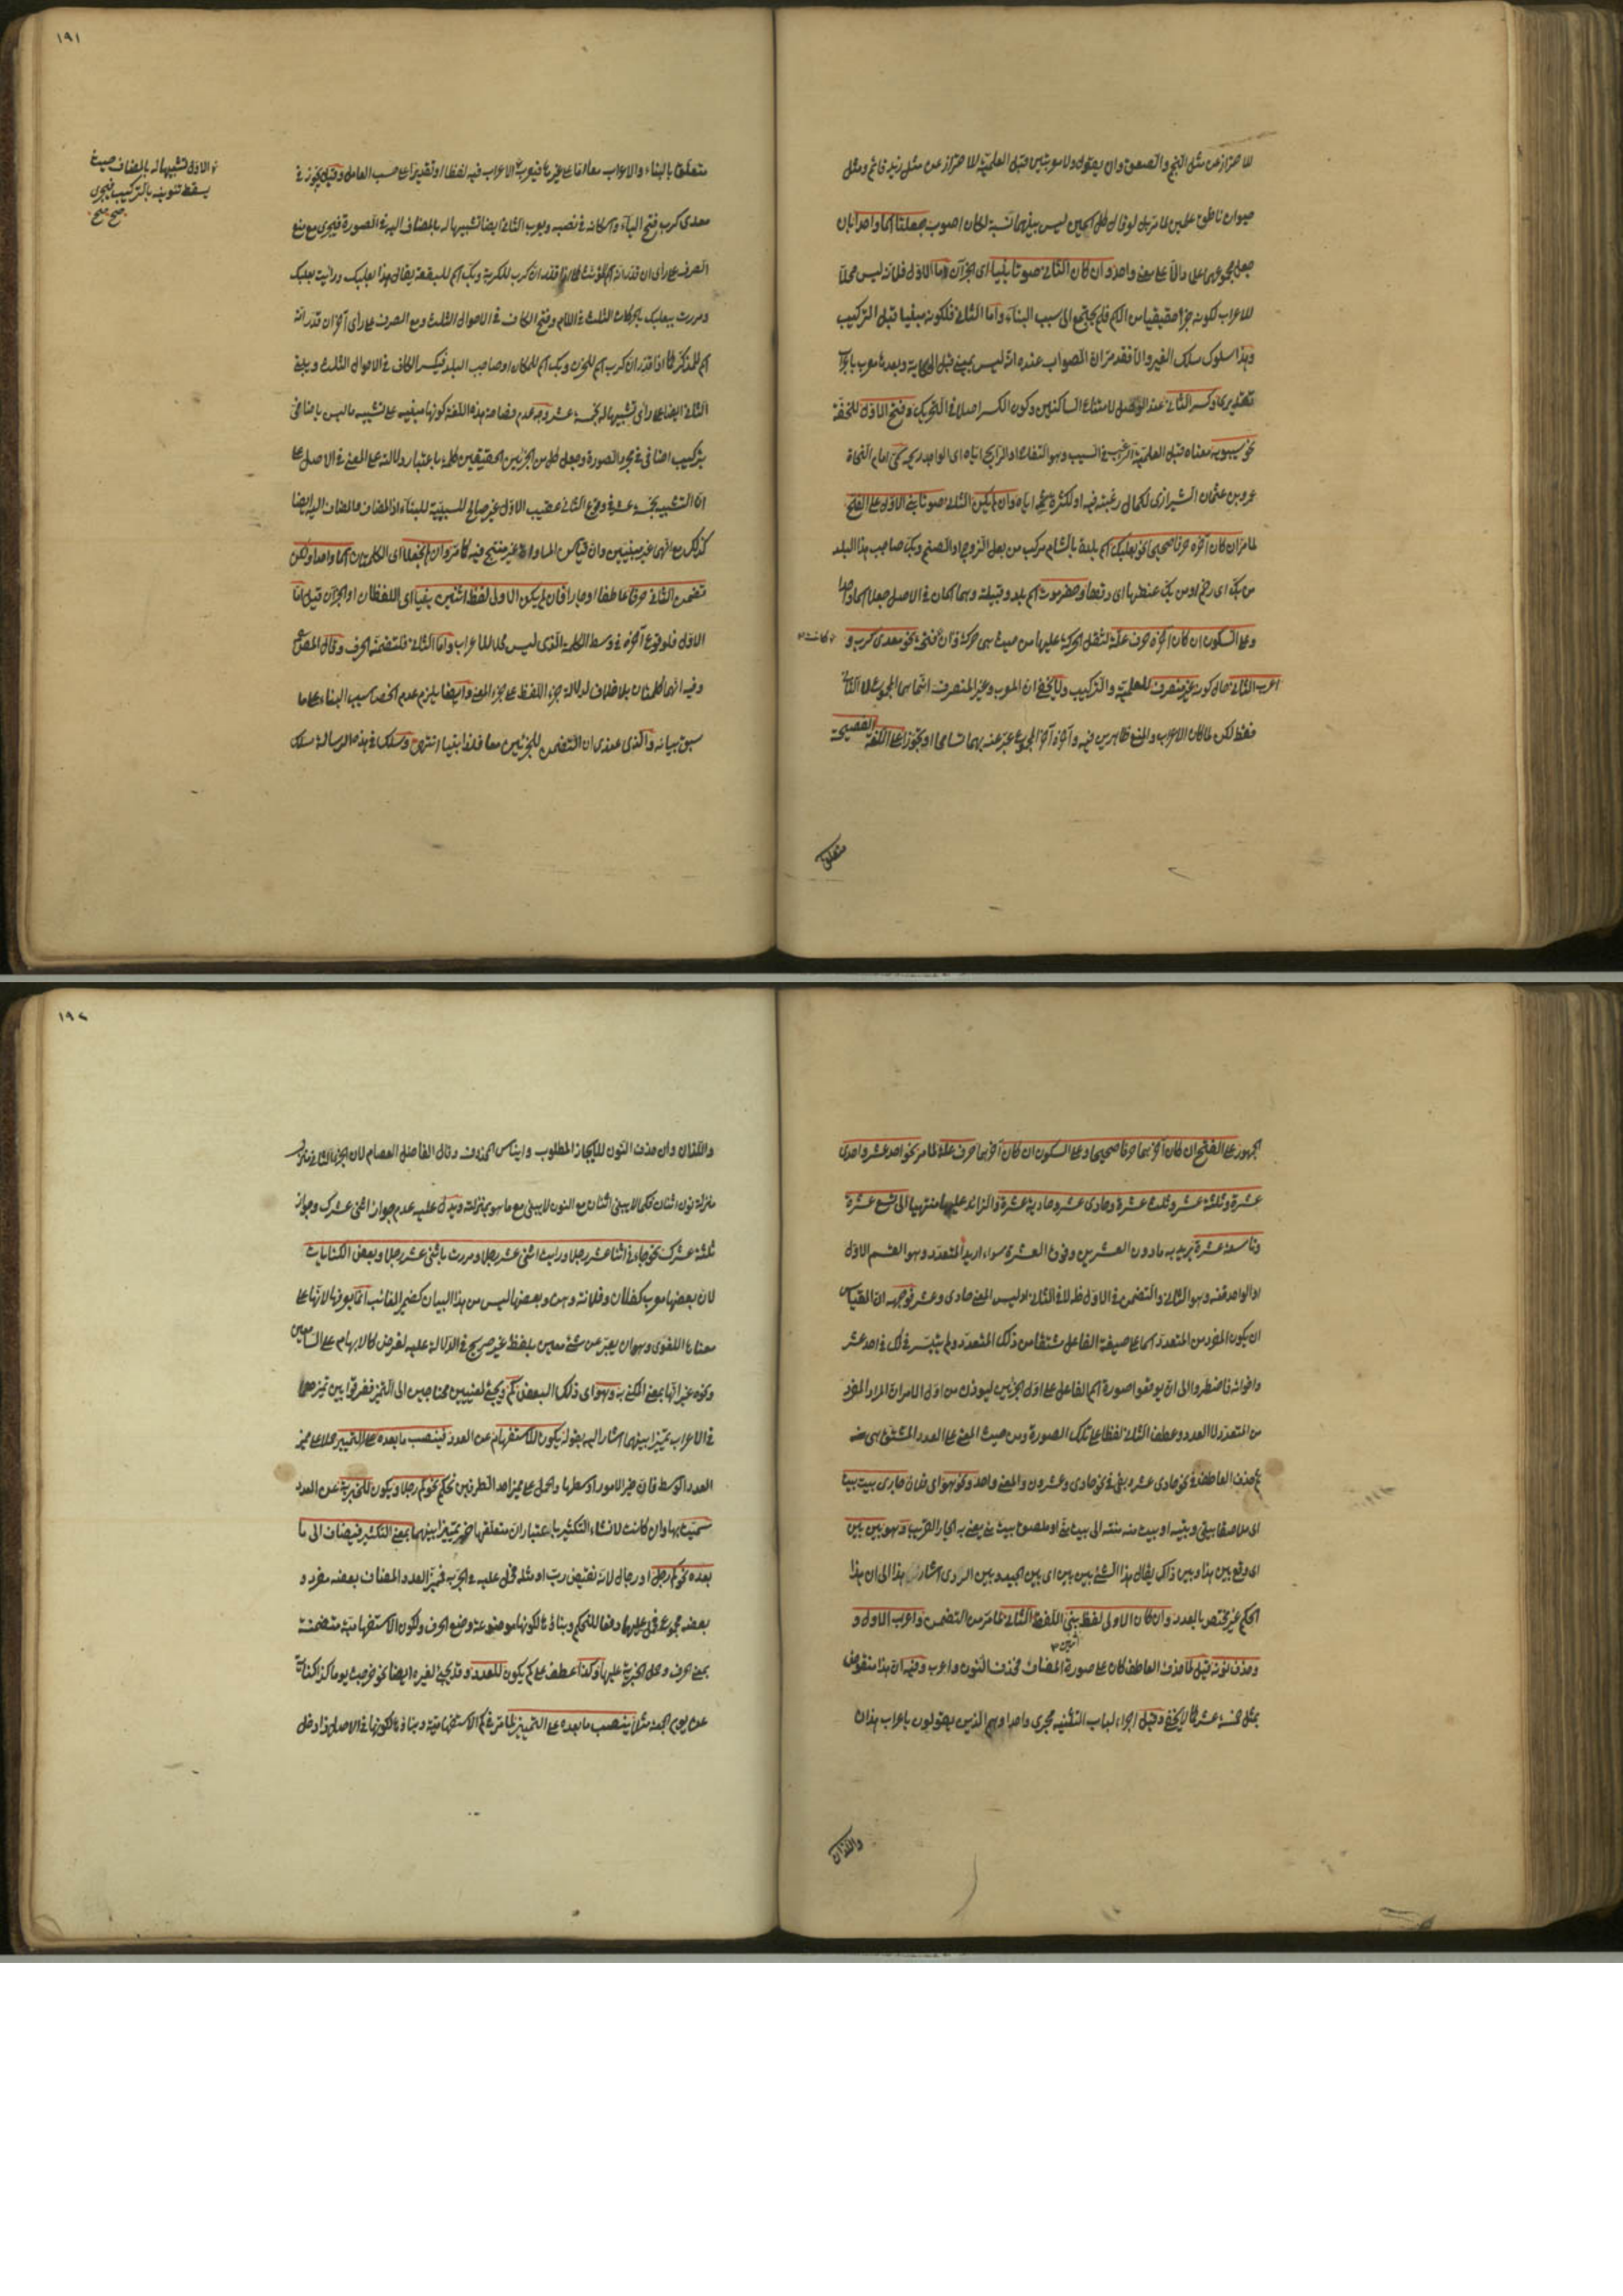 للاحتراز عن مثل النجم والصعق وان يقول ولا مو بين قبل العلمية للاحتراز عن مثل زيد قائم ومثل
حيوان ناطق علمين لما مر بل لو قال كل اسمين ليس بينهما نسبة لكان اصوب جعلتا اسما واحدا بان
جعل مجموعهما علما دالا على معنى واحد وان كان الثاني صوتا بنيا اى الجزآن اما الاول فلانه ليس محلا
للاعراب لكونه جزأ حقيقيا من الكلم فلم يحتج الى سبب البناء واما الثاني فلكونه مبنيا قبل التركيب
وهذا سلوك مسلك الغير والا فقد مر ان الصواب عنده انه ليس بمبنى قبل الحكاية وبعدها معرب باعراب
تقديرى وكسر الثاني عند الوصل لامتناع الساكنين وكون الكسر اصلا فى التحريك وفتح الاول للخفة
نحو سيبويه معناه قبل العلمية الرغب فى السيب وهو التفاح او الرايح اياه اى الواجد ريحه سمى امام النحاة
عمرو بن عثمان الشيرازى لكمال رغبته فيه او لكثرة شمه اياه وان لم يكن الثاني صوتا بنى الاول على الفتح
لما مر ان كان آخره حرفا صحيحا نحو بعلبك اسم بلدة بالشام مركب من بعل الزوج او الصنم وبك صاحب هذا البلد
من بك اى زحم او من بك عنقه اى دقها وحضرموت اسم بلد وقبيلة وهما اسمان فى الاصل جعلا اسما واحدا
وعلى السكون ان كان آخره حرف علة لثقل الحركة عليها من حيث هى حركة وان كانت فتحة نحو معدى كرب و
اعرب الثاني حال كونه غير منصرف للعلمية والتركيب ولا يخفى ان المعرب وغير المنصرف انما هما المجموع لا الثاني
فقط لكن لما كان الاعراب والمنع ظاهرين فيه وآخره آخر المجموع عبر عنه بهما تسامحا او تجوزا على اللغة الفصيحة
متعلق
١٩١
متعلق بالبناء والاعراب معا اما على غيرها فيعرب الاعراب فيه لفظا او تقديرا على حسب العامل وقيل يجوز فى
معدى كرب فتح الياء واسكانه فى نصبه ويعرب الثاني ايضا تشبيها له بالمضاف اليه فى الصورة فيجرى مع منع
الصرف على رأى ان قدر انه اسم المؤنث كما اذا قدر ان كرب للكربة وبك اسم للبقعة يقال هذا بعلبك ورأيت بعلبك
ومررت ببعلبك بالحركات الثلث فى اللام وفتح الكاف فى الاحوال الثلث ومع الصرف على رأى آخر ان قدر انه
اسم للمذكر كما اذا قدر ان كرب اسم للحزن وبك اسم للمكان او صاحب البلد فيكسر الكاف فى الاحوال الثلث ويبنى
الثاني ايضا على رأى تشبيها له بخمسة عشر وجه عدم فصاحة هذه اللغة كونها مبنيه على تشبيه ما ليس باضافى
بتركيب اضافى فى مجرد الصورة وجعل كل من الجزئين الحقيقيين كلمة باعتبار دلالته على المعنى فى الاصل على
ان التشبيه بخمسة عشر فى وقوع الثاني عقيب الاول غير صالح للسببية للبناء اذ المضاف والمضاف اليه ايضا
كذلك مع انهما غير مبنيين وان قياس المساواة غير منتج فيه كما مر وان لم يجعلا اى الكلمتان اسما واحدا ولكن
تضمن الثاني حرفا عاطفا او جارا فان لم يكن الاولى لفظ اثنين بنيا اى اللفظان او الجزآن قيل اما
الاول فلوقوع آخره فى وسط الكلمة الذى ليس محلا للاعراب واما الثاني فلتضمنه الحرف وقال المصنف
وفيه انهما كلمتان بلا خلاف لدلالة جزء اللفظ على جزء المعنى وايضا يلزم عدم انحصار سبب البناء على ما
سبق بيانه والذى عندى ان التضمن للجزئين معا فلذا بنيا انتهى وسلك فى هذه الرسالة مسلك
الاول تشبيها له بالمضاف حيث
يسقط تنوينه بالتركيب فيجرى
صح صح
الجمهور على الفتح ان كان آخرهما حرفا صحيحا وعلى السكون ان كان آخرهما حرف علة لما مر نحو احد عشر واحدى
عشرة وثلثة عشر وثلث عشرة وحادى عشر وحادية عشرة والزائد عليهما منتهيا الى تسع عشرة
وتاسعة عشرة يريد به ما دون العشرين وفوق العشرة سواء اريد المتعدد وهو القسم الاول
او الواحد منه وهو الثاني والتضمن فى الاول ظ لا فى الثاني اذ ليس المعنى حادى وعشر فوجهه ان القياس
ان يكون المفرد من المتعدد اسما على صيغة الفاعل مشتقا من ذلك المتعدد ولم يتيسر ذلك فى احد عشر
واخواته فاضطروا الى ان يوقعوا صورة اسم الفاعل على اول الجزئين ليؤذن من اول الامر ان المراد المفرد
من المتعدد لا العدد وعطف الثاني لفظا على تلك الصورة ومن حيث المعنى على العدد المشتق هى منه
ثم حذف العاطف فى نحو حادى عشر وبقى فى نحو حادى وعشرون والمعنى واحد ونحو هو اى فلان جارى بيت بيت
اى ملاصقا بيتى وبيته او بيت منه منته الى بيت منى او ملصوق بيت منى يعنى به الجار القريب وهو بين بين
اى وقع بين هذا وبين ذاك يقال هذا الشئ بين بين اى بين الجيد وبين الردى اشار بهذا الى ان هذا
الحكم غير مختص بالعدد وان كان الاولى لفظ اثنين بنى اللفظ الثاني لما مر من التضمن واعرب الاول و
وحذف نونه قيل لما حذف العاطف كان على صورة المضاف فحذف النون واعرب وفيه ان هذا منقوض
بمثل خمسة عشر كما لا يخفى وقيل اجراء لباب التثنية مجرى واحدا وهم الذين يقولون باعراب هذان
واللذان
١٩٢
واللذان وان حذف النون للايجاز المطلوب وايناس الحذف وقال الفاضل العصام لان الجزء الثاني منزل
منزلة نون اثنان فكما لا يبنى اثنان مع النون لا يبنى مع ما هو بمنزلته ويدل عليه عدم جواز اثنى عشرك وجواز
ثلثة عشرك نحو جاءنى اثنا عشر رجلا ورأيت اثنى عشر رجلا ومررت باثنى عشر رجلا وبعض الكنايات
لان بعضها معرب كفلان وفلانة وهن وبعضها ليس من هذا البيان كضمير الغائب انما يعرفها لانها على
معناها اللغوى وهو ان يعبر عن شئ معين بلفظ غير صريح فى الدلالة عليه لغرض كالابهام على السامعين
ونحوه غير انها بمعنى المكنى به وهو اى ذلك البعض كم ويجئ لمعنيين محتاجين الى التميز ففرقوا بين تميزهما
فى الاعراب تميزا بينهما اشار اليه بقوله يكون للاستفهام عن العدد فينصب ما بعده على التمييز حملا على مميز
العدد الوسط فان خير الامور اوسطها والحمل على مميز احد الطرفين تحكم نحو كم رجلا ويكون للخبرية عن العدد
سميت بها وان كانت لانشاء التكثير باعتبار ان متعلقها خبر تميزا بينهما بمعنى التكثير فيضاف الى ما
بعده نحو كم رجل او رجال لانه نقيض رب او مثله فحمل عليه فى الجر به فمميز العدد المضاف بعضه مفرد و
بعضه مجموع فحمل عليهما دفعا للتحكم وبناؤها لكونها موضوعة وضع الحرف ولكون الاستفهامية متضمنة
بمعنى الحرف وحمل الخبرية عليها وكذا عطف على كم يكون للعدد وقد يجئ لغيره ايضا نحو خرجت يوم كذا كناية
عن يوم الجمعة مثلا ينصب ما بعده على التمييز لما مر فى كم الاستفهامية وبناؤها لكونها فى الاصل ذا دخل